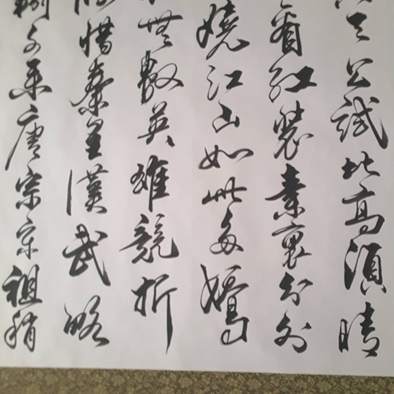 天公試比高須晴
看紅裝素裹分外
嬈江山如此多嬌
無數英雄競折
惜秦皇漢武略
文采唐宗宋祖稍